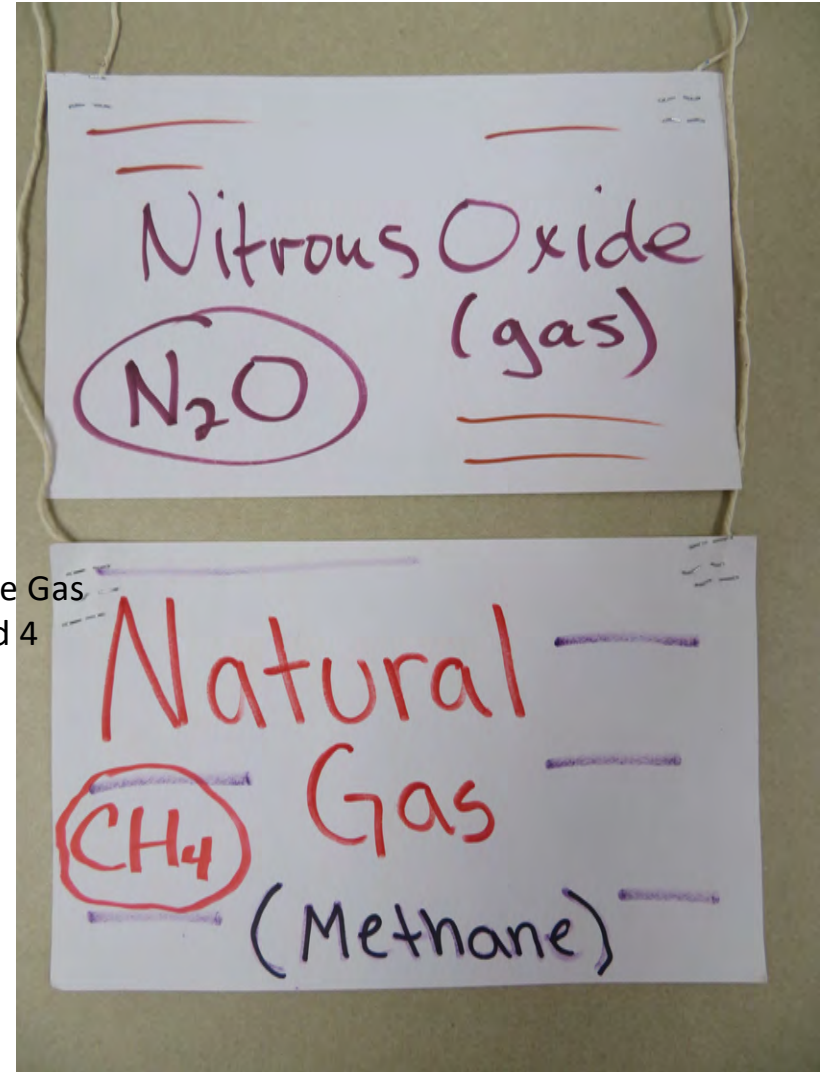 Nitrous Oxide
(gas)
N₂O
e Gas
d 4
Natural
Gas
CH₄
(Methane)